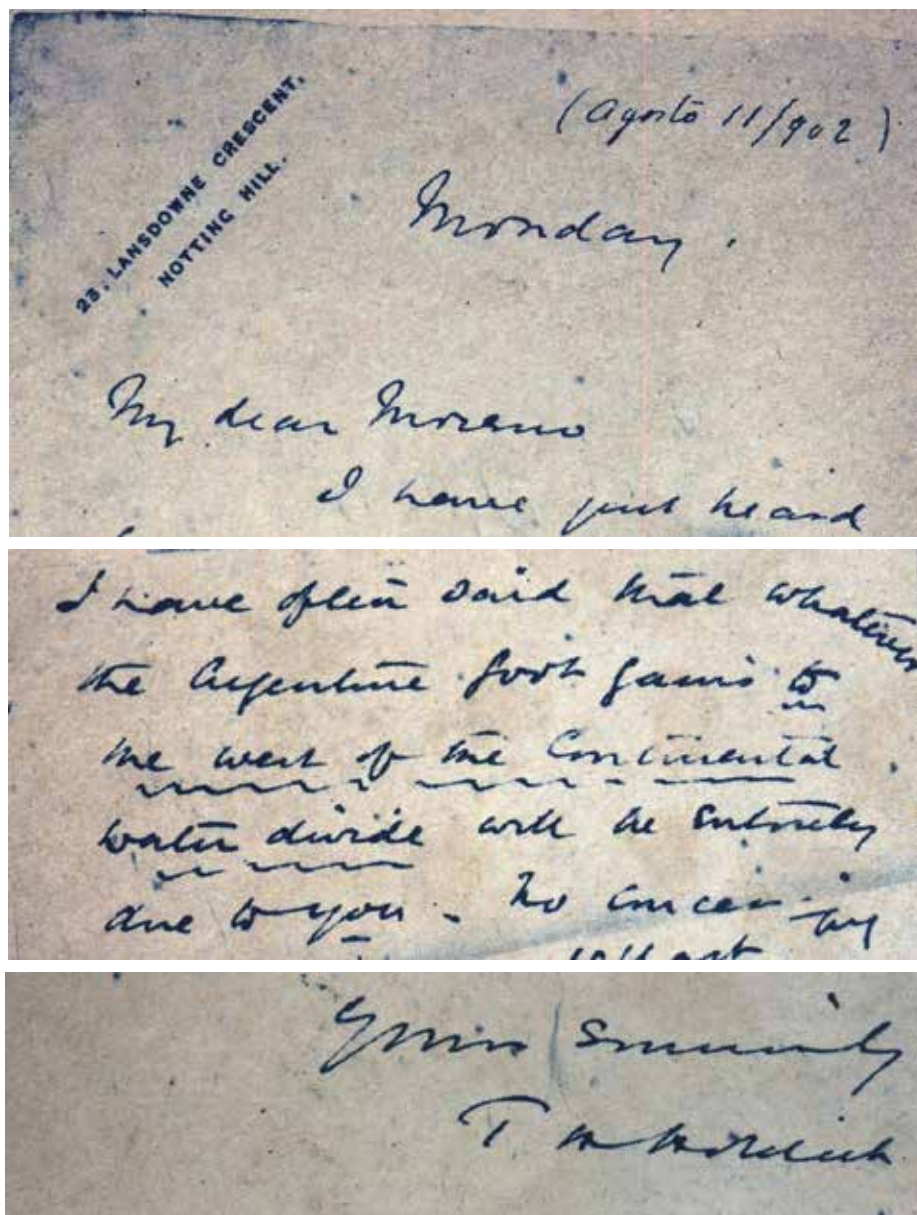 23, LANSDOWNE CRESCENT,
NOTTING HILL.
(Agosto 11/902)
Monday.
My dear Moreno
I have just heard
I have often said that whatever
the Argentine Govt gains to
the west of the Continental
water divide will be entirely
due to you - No
Yours Sincerely
T H Holdich